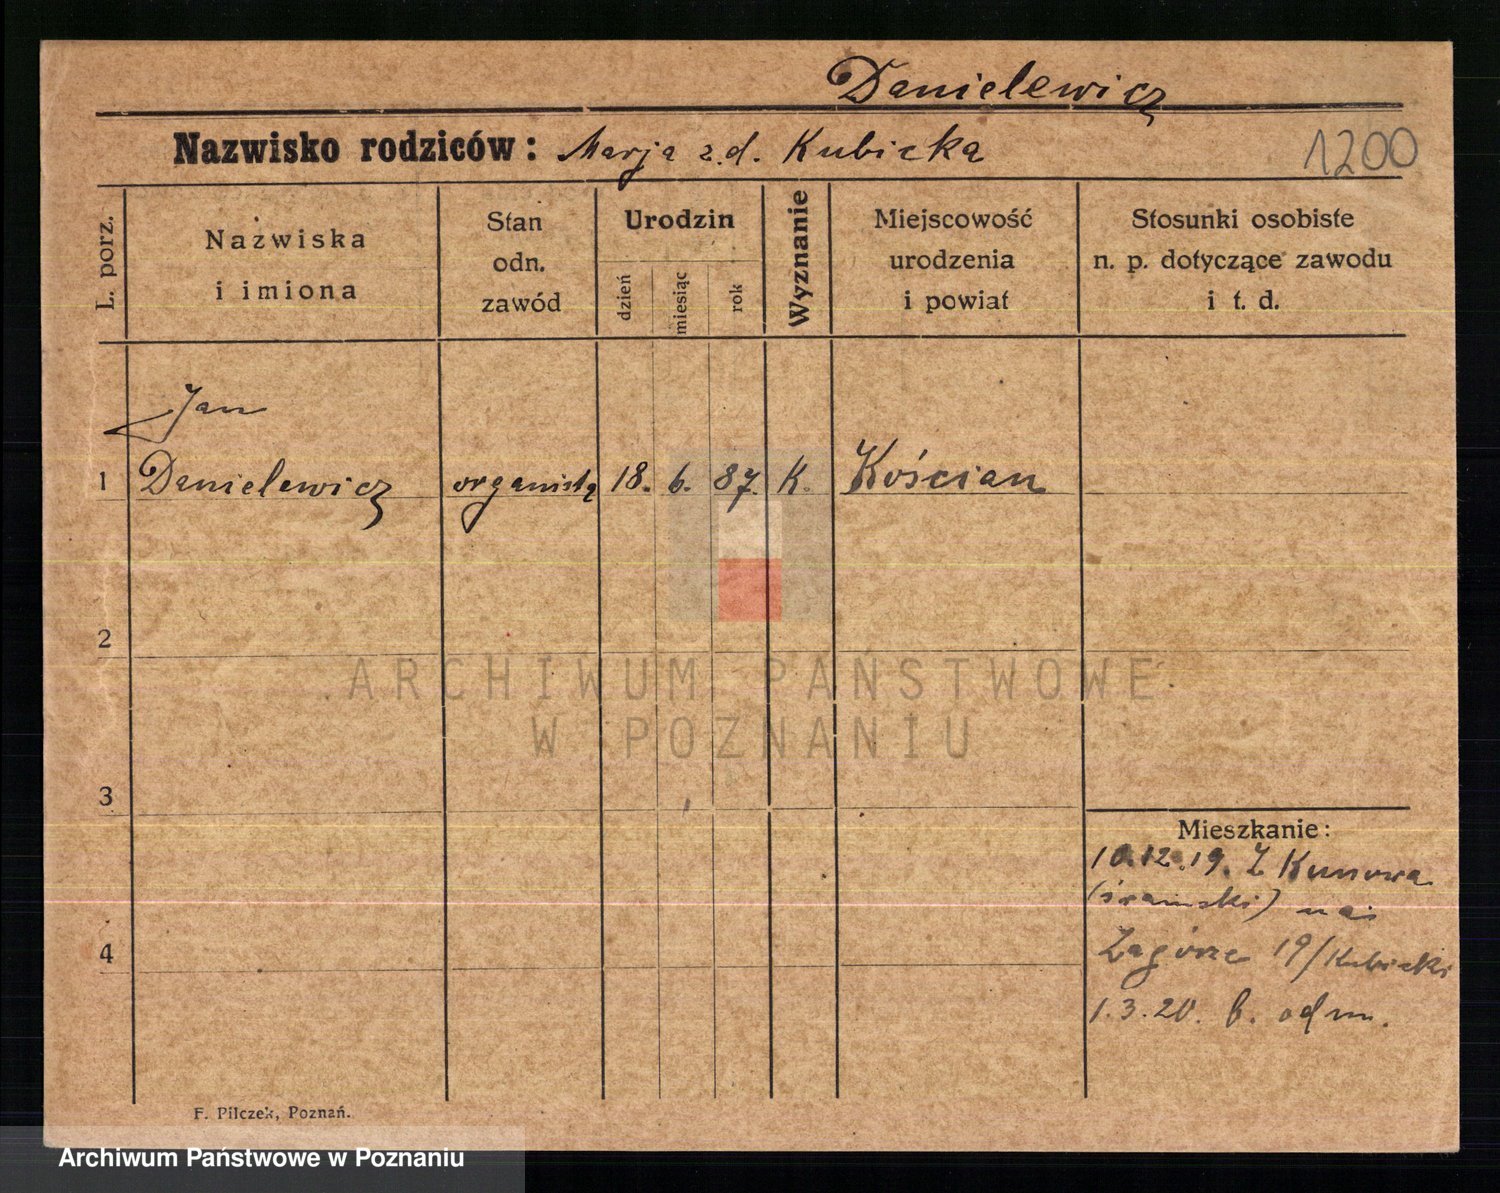 Danielewicz
Nazwisko rodziców: Marja z.d. Kubicka
1200
L. porz.
Nazwiska
i imiona
Stan
odn.
zawód
Urodzin
dzień
miesiąc
rok
Wyznanie
Miejscowość
urodzenia
i powiat
Stosunki osobiste
n. p. dotyczące zawodu
i t. d.
Jan
1 Danielewicz organista 18. 6. 87. K. Kościan
2
ARCHIWUM PAŃSTWOWE
W POZNANIU
3
Mieszkanie:
10.12.19. Z Kunowa
(śremski) na
4
Zagórze 19/Kubicki
1.3.20. b. odm.
F. Pilczek, Poznań.
Archiwum Państwowe w Poznaniu